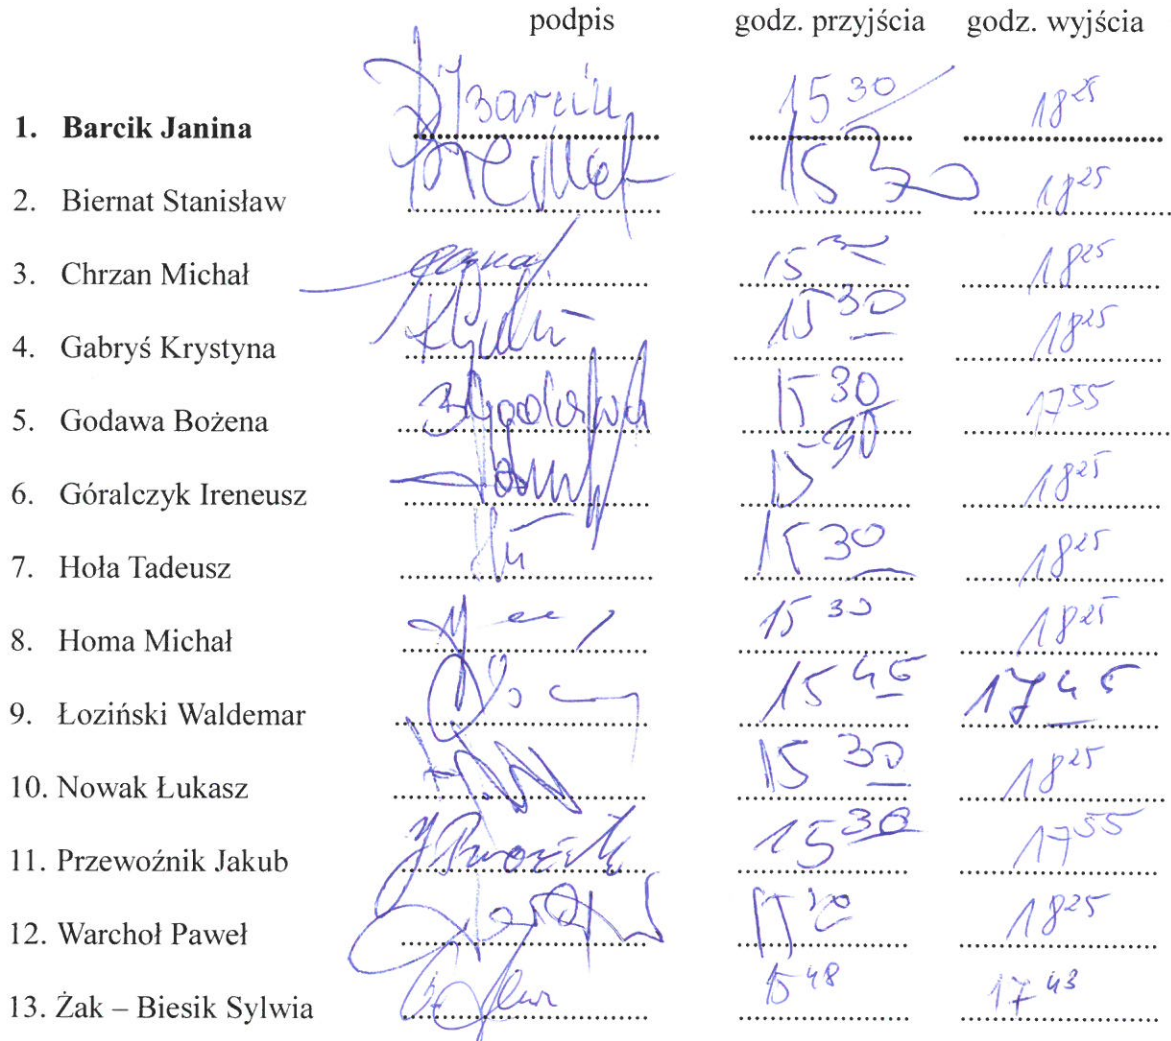 podpis godz. przyjścia godz. wyjścia
1. Barcik Janina JBarcik 15 30 18 25
2. Biernat Stanisław 15 30 18 25
3. Chrzan Michał 15 30 18 25
4. Gabryś Krystyna 15 30 18 25
5. Godawa Bożena 15 30 17 55
6. Góralczyk Ireneusz 15 30 18 25
7. Hoła Tadeusz 15 30 18 25
8. Homa Michał 15 30 18 25
9. Łoziński Waldemar 15 45 17 45
10. Nowak Łukasz 15 30 18 25
11. Przewoźnik Jakub 15 30 17 55
12. Warchoł Paweł 15 30 18 25
13. Żak – Biesik Sylwia 15 48 17 43